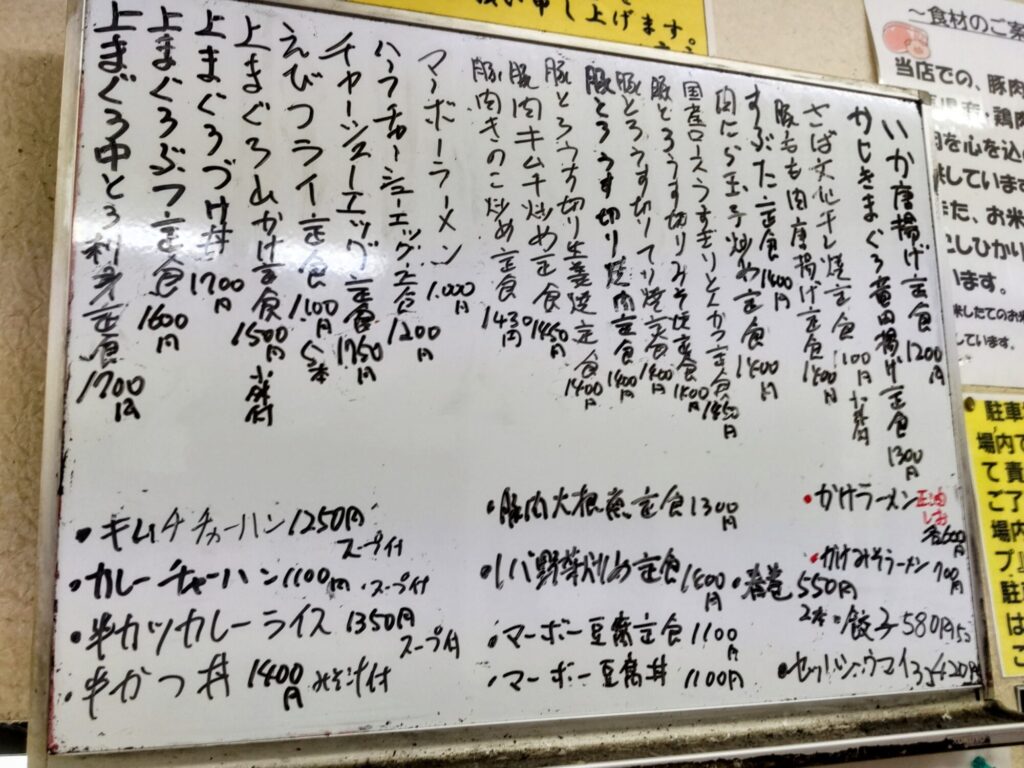 上げます。
いか唐揚げ定食 1200円
かじきまぐろ竜田揚げ定食 1300円
さば文化干し焼定食 1100円 小鉢付
豚もも肉唐揚げ定食 1400円
すぶた定食 1400円
肉にら玉子炒め定食 1400円
国産ロースうすぎりとんかつ定食 1450円
豚とろうす切りみそ焼定食 1400円
豚とろうす切りてり焼定食 1400円
豚とろうす切り焼肉定食 1400円
豚とろうす切り生姜焼定食 1400円
豚肉キムチ炒め定食 1450円
豚肉きのこ炒め定食 1430円
マーボーラーメン 1,000円
ハーフチャーシューエッグ定食 1200円
チャーシューエッグ定食 1750円
えびフライ定食 1,100円 5本
上まぐろ山かけ定食 1500円 小鉢付
上まぐろづけ丼 1700円
上まぐろぶつ定食 1600円
上まぐろ中とろ刺身定食 1700円
・かけラーメン 正油 しお 各600円
・かけみそラーメン 700円
・豚肉大根煮定食 1300円
・レバ野菜炒め定食 1400円
・春巻 550円 2本
・餃子 580円 5コ
・マーボー豆腐定食 1100円
・マーボー豆腐丼 1100円
・キムチチャーハン 1250円 スープ付
・カレーチャーハン 1100円 ・スープ付
・半カツカレーライス 1350円 スープ付
・半かつ丼 1400円 みそ汁付
～食材のご案
当店での、豚肉
・鶏肉
を心を込め
しています
た、お米
しひかり
います。
米したてのお米
しています。
駐車
場内で
て責
ご了
場内
プ
駐
は
ご